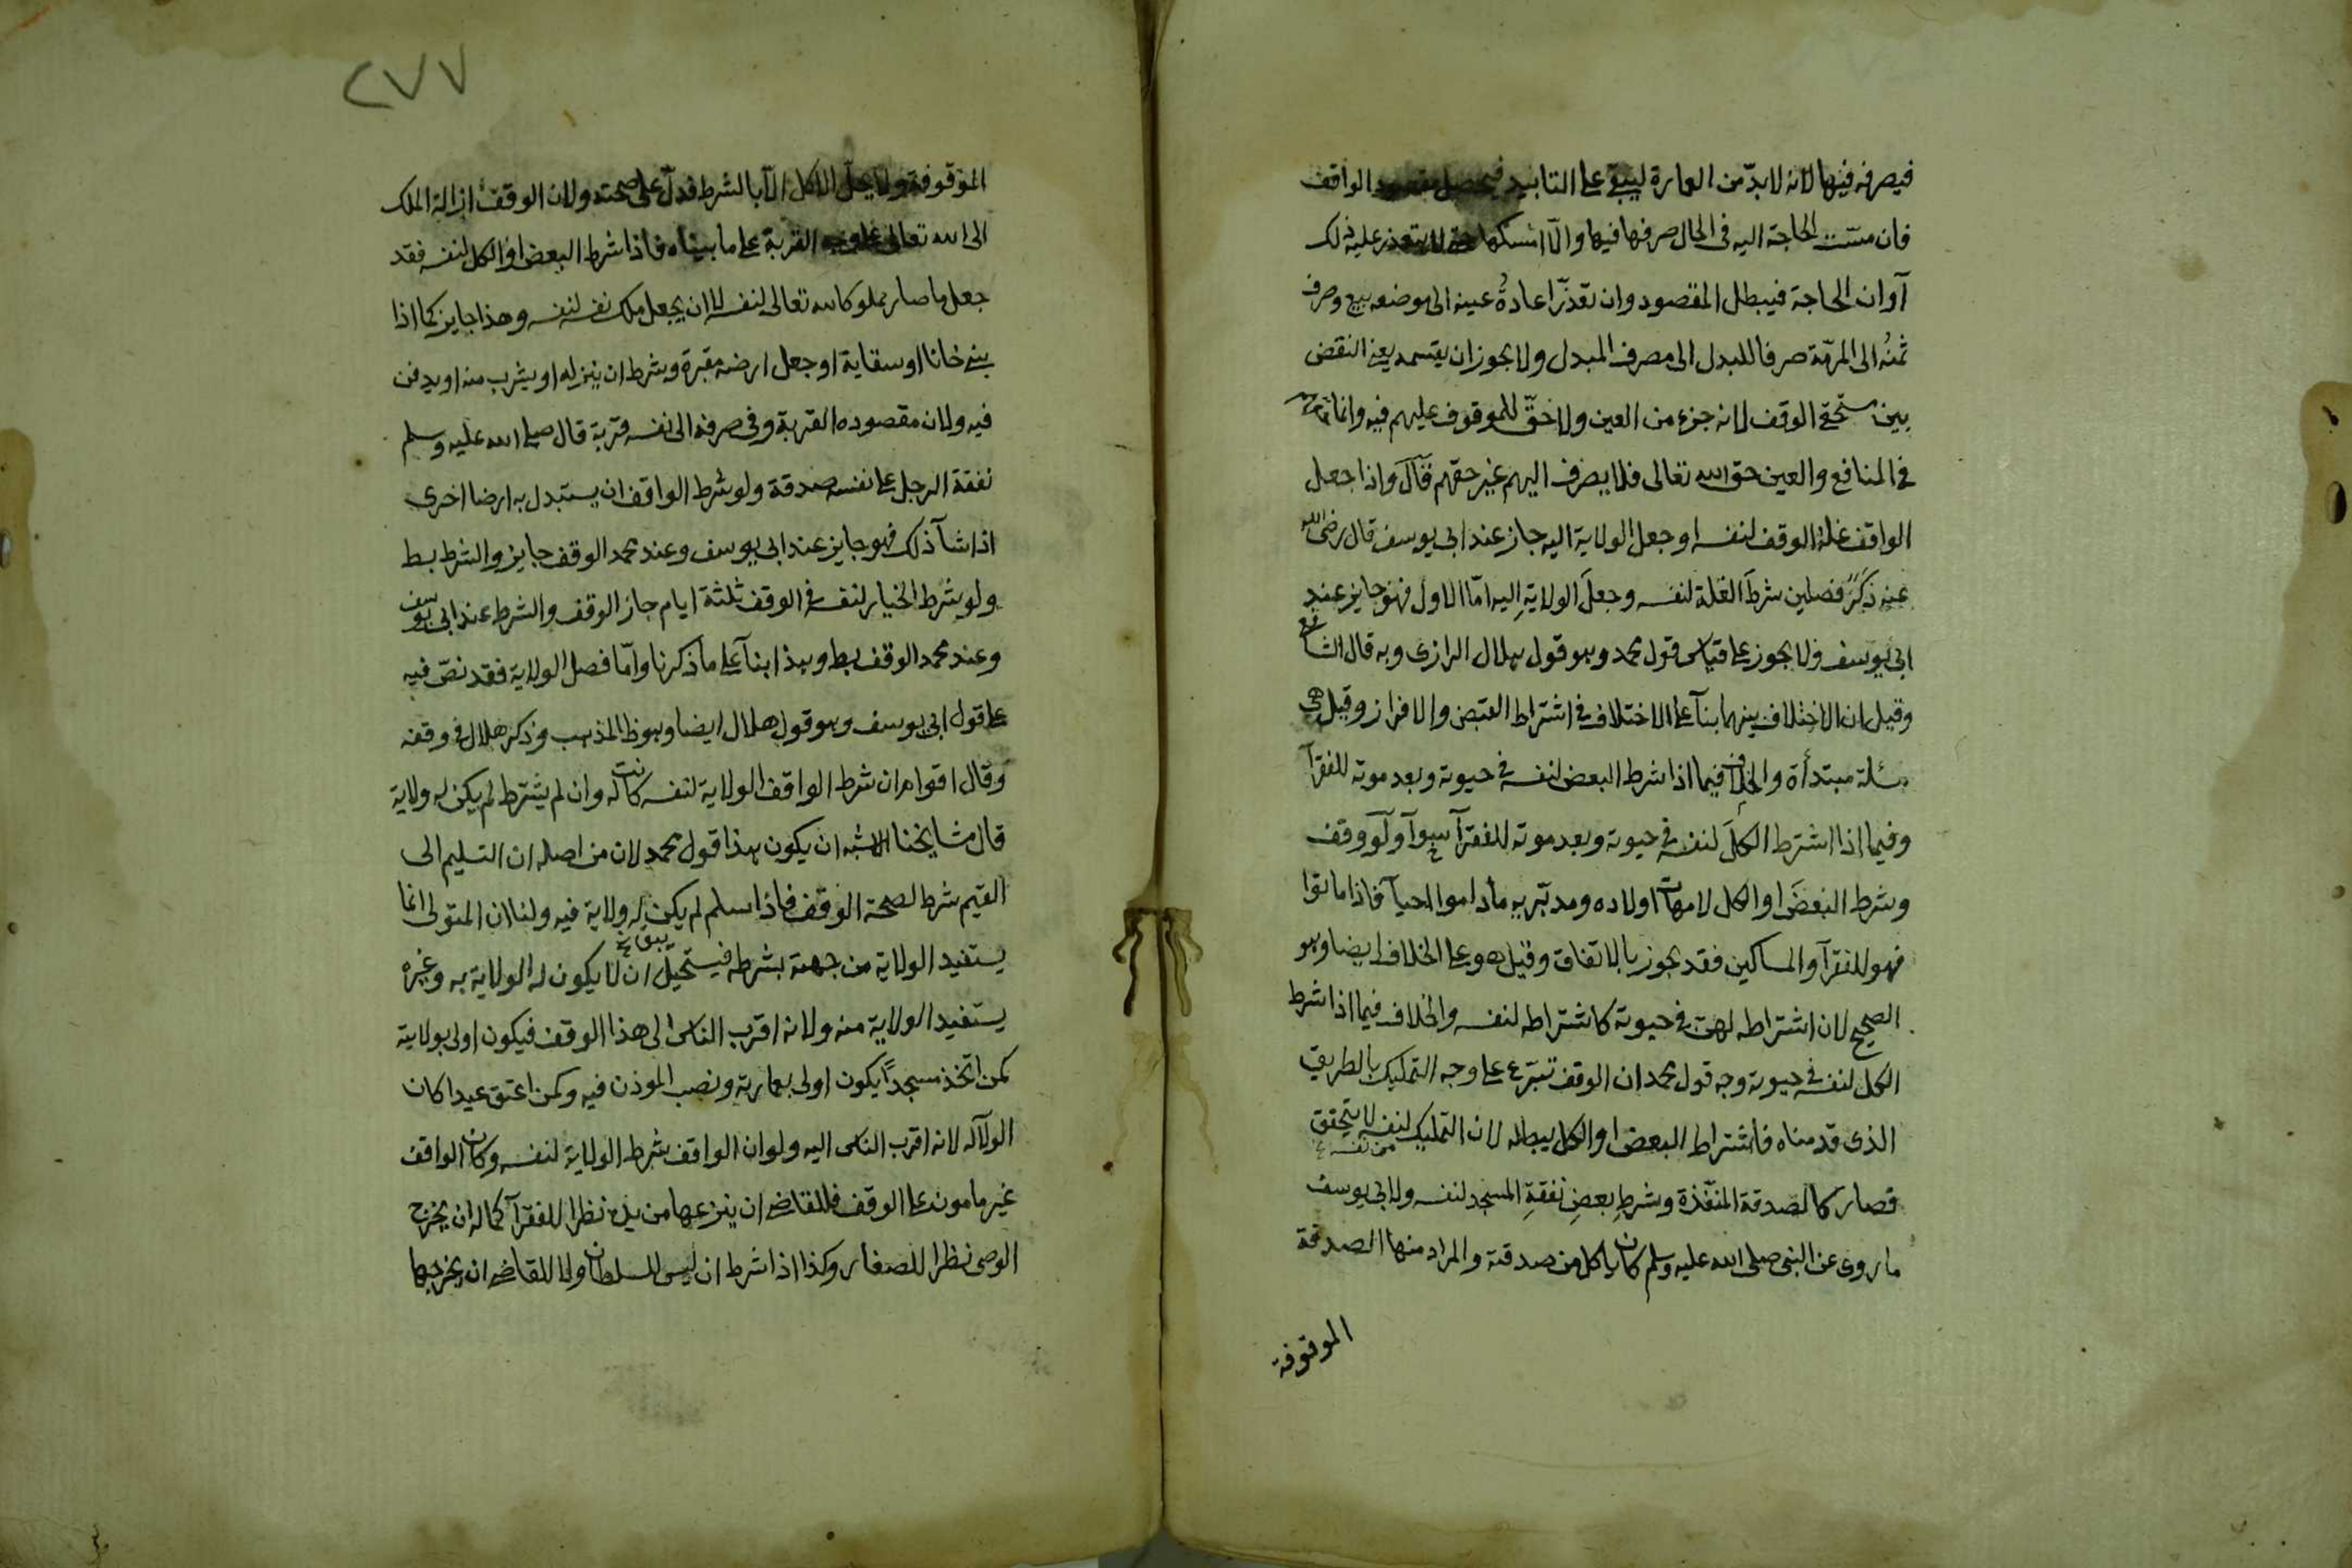 فيصرفه فيها لانه لا بدّ من العمارة ليبقى على التابيد فيحصل مقصود الواقف
فان مسّت الحاجة اليه فى الحال صرفها فيها والّا امسكها حتى لا يتعذر عليه ذلك
آوان الحاجة فيبطل المقصود وان تعذّر اعادةُ عينه الى موضعه بيع وصرف
ثمنُه الى المرمّة صرفا للبدل الى مصرف المبدل ولا يجوز ان يقسمه يعنى النقض
بين مستحقى الوقف لانه جزء من العين ولا حقّ للموقوف عليهم فيه وانما حقهم
فى المنافع والعين حق الله تعالى فلا يصرف اليهم غير حقهم قال واذا جعل
الواقف غلة الوقف لنفسه او جعل الولاية اليه جاز عند ابى يوسف قال رضى الله
عنه ذكر فصلين شرطَ الغلة لنفسه وجعلَ الولايةِ اليه امّا الاول فهو جايز عند
ابى يوسف ولا يجوز على قياس قول محمد وهو قول هلال الرازى وبه قال الشافعى
وقيل ان الاختلاف بينهما بنآ على الاختلاف فى اشتراط القبض والافراز وقيل هى
مسئلة مبتدأة والخلاف فيما اذا شرط البعض لنفسه فى حيوته وبعد موته للفقرآ
وفيما اذا اشترط الكلَ لنفسه فى حيوته وبعد موته للفقرآ سوآ ولو وقف
وشرط البعضَ او الكل لامهات اولاده ومدبّريه ما داموا احيآ فاذا ماتوا
فهو للفقرآ والمساكين فقد يجوز بالاتفاق وقيل هو على الخلاف ايضا وهو
الصحيح لان اشتراطه لهم فى حيوته كاشتراطه لنفسه والخلاف فيما اذا شرط
الكل لنفسه فى حيوته وجه قول محمد ان الوقف تبرّع على وجه التمليك بالطريق
الذى قدمناه فاشتراط البعض او الكل يبطله لان التمليك لنفسه لا يتحقق
من نفسه
فصار كالصدقة المنفّذة وشرطِ بعضِ نفقةِ المسجد لنفسه ولابى يوسف
ما روى عن النبى صلى الله عليه وسلم كان ياكل من صدقته والمراد منها الصدقة
الموقوفة
٢٧٧
الموقوفة ولا يحلّ الاكل الّا بالشرط فدلّ على صحته ولان الوقف ازالة الملك
الى الله تعالى على وجه القربة على ما بيناه فاذا شرط البعض او الكل لنفسه فقد
جعل ما صار مملوكا لله تعالى لنفسه لا ان يجعل ملك نفسه لنفسه وهذا جايز كما اذا
بنى خانا او سقاية او جعل ارضه مقبرة وشرط ان ينزله او يشرب منه او يدفن
فيه ولان مقصوده القربة وفى صرفه الى نفسه قربة قال صلى الله عليه وسلم
نفقة الرجل على نفسه صدقة ولو شرط الواقف ان يستبدل به ارضا اخرى
اذا شآ ذلك فهو جايز عند ابى يوسف وعند محمد الوقف جايز والشرط بط
ولو شرط الخيار لنفسه فى الوقف ثلثة ايام جاز الوقف والشرط عند ابى يوسف
وعند محمد الوقف بط وهذا بنآ على ما ذكرنا وامّا فصل الولاية فقد نصّ فيه
على قول ابى يوسف وهو قول هلال ايضا وهو ظ المذهب وذكر هلال فى وقفه
وقال اقوام ان شرط الواقف الولاية لنفسه كانت له وان لم يشترط لم يكن له ولاية
قال مشايخنا الاشبه ان يكون هذا قول محمد لان من اصله ان التسليم الى
القيم شرط لصحة الوقف فاذا سلم لم يكن له ولاية فيه ولنا ان المتولى انما
يستفيد الولاية من جهته بشرطه فيستحيل ان لا يكون له الولاية به وغيره
يستفيد الولاية منه ولانه اقرب الناس الى هذا الوقف فيكون اولى بولايته
كمن اتخذ مسجداً يكون اولى بعمارته ونصب الموذن فيه وكمن اعتق عبدا كان
الولآ له لانه اقرب الناس اليه ولو ان الواقف شرط الولاية لنفسه وكان الواقف
غير مامون على الوقف فللقاضى ان ينزعها من يده نظرا للفقرآ كما له ان يخرج
الوصى نظرا للصغار وكذا اذا شرط ان ليس للسلطان ولا للقاضى ان يخرجها